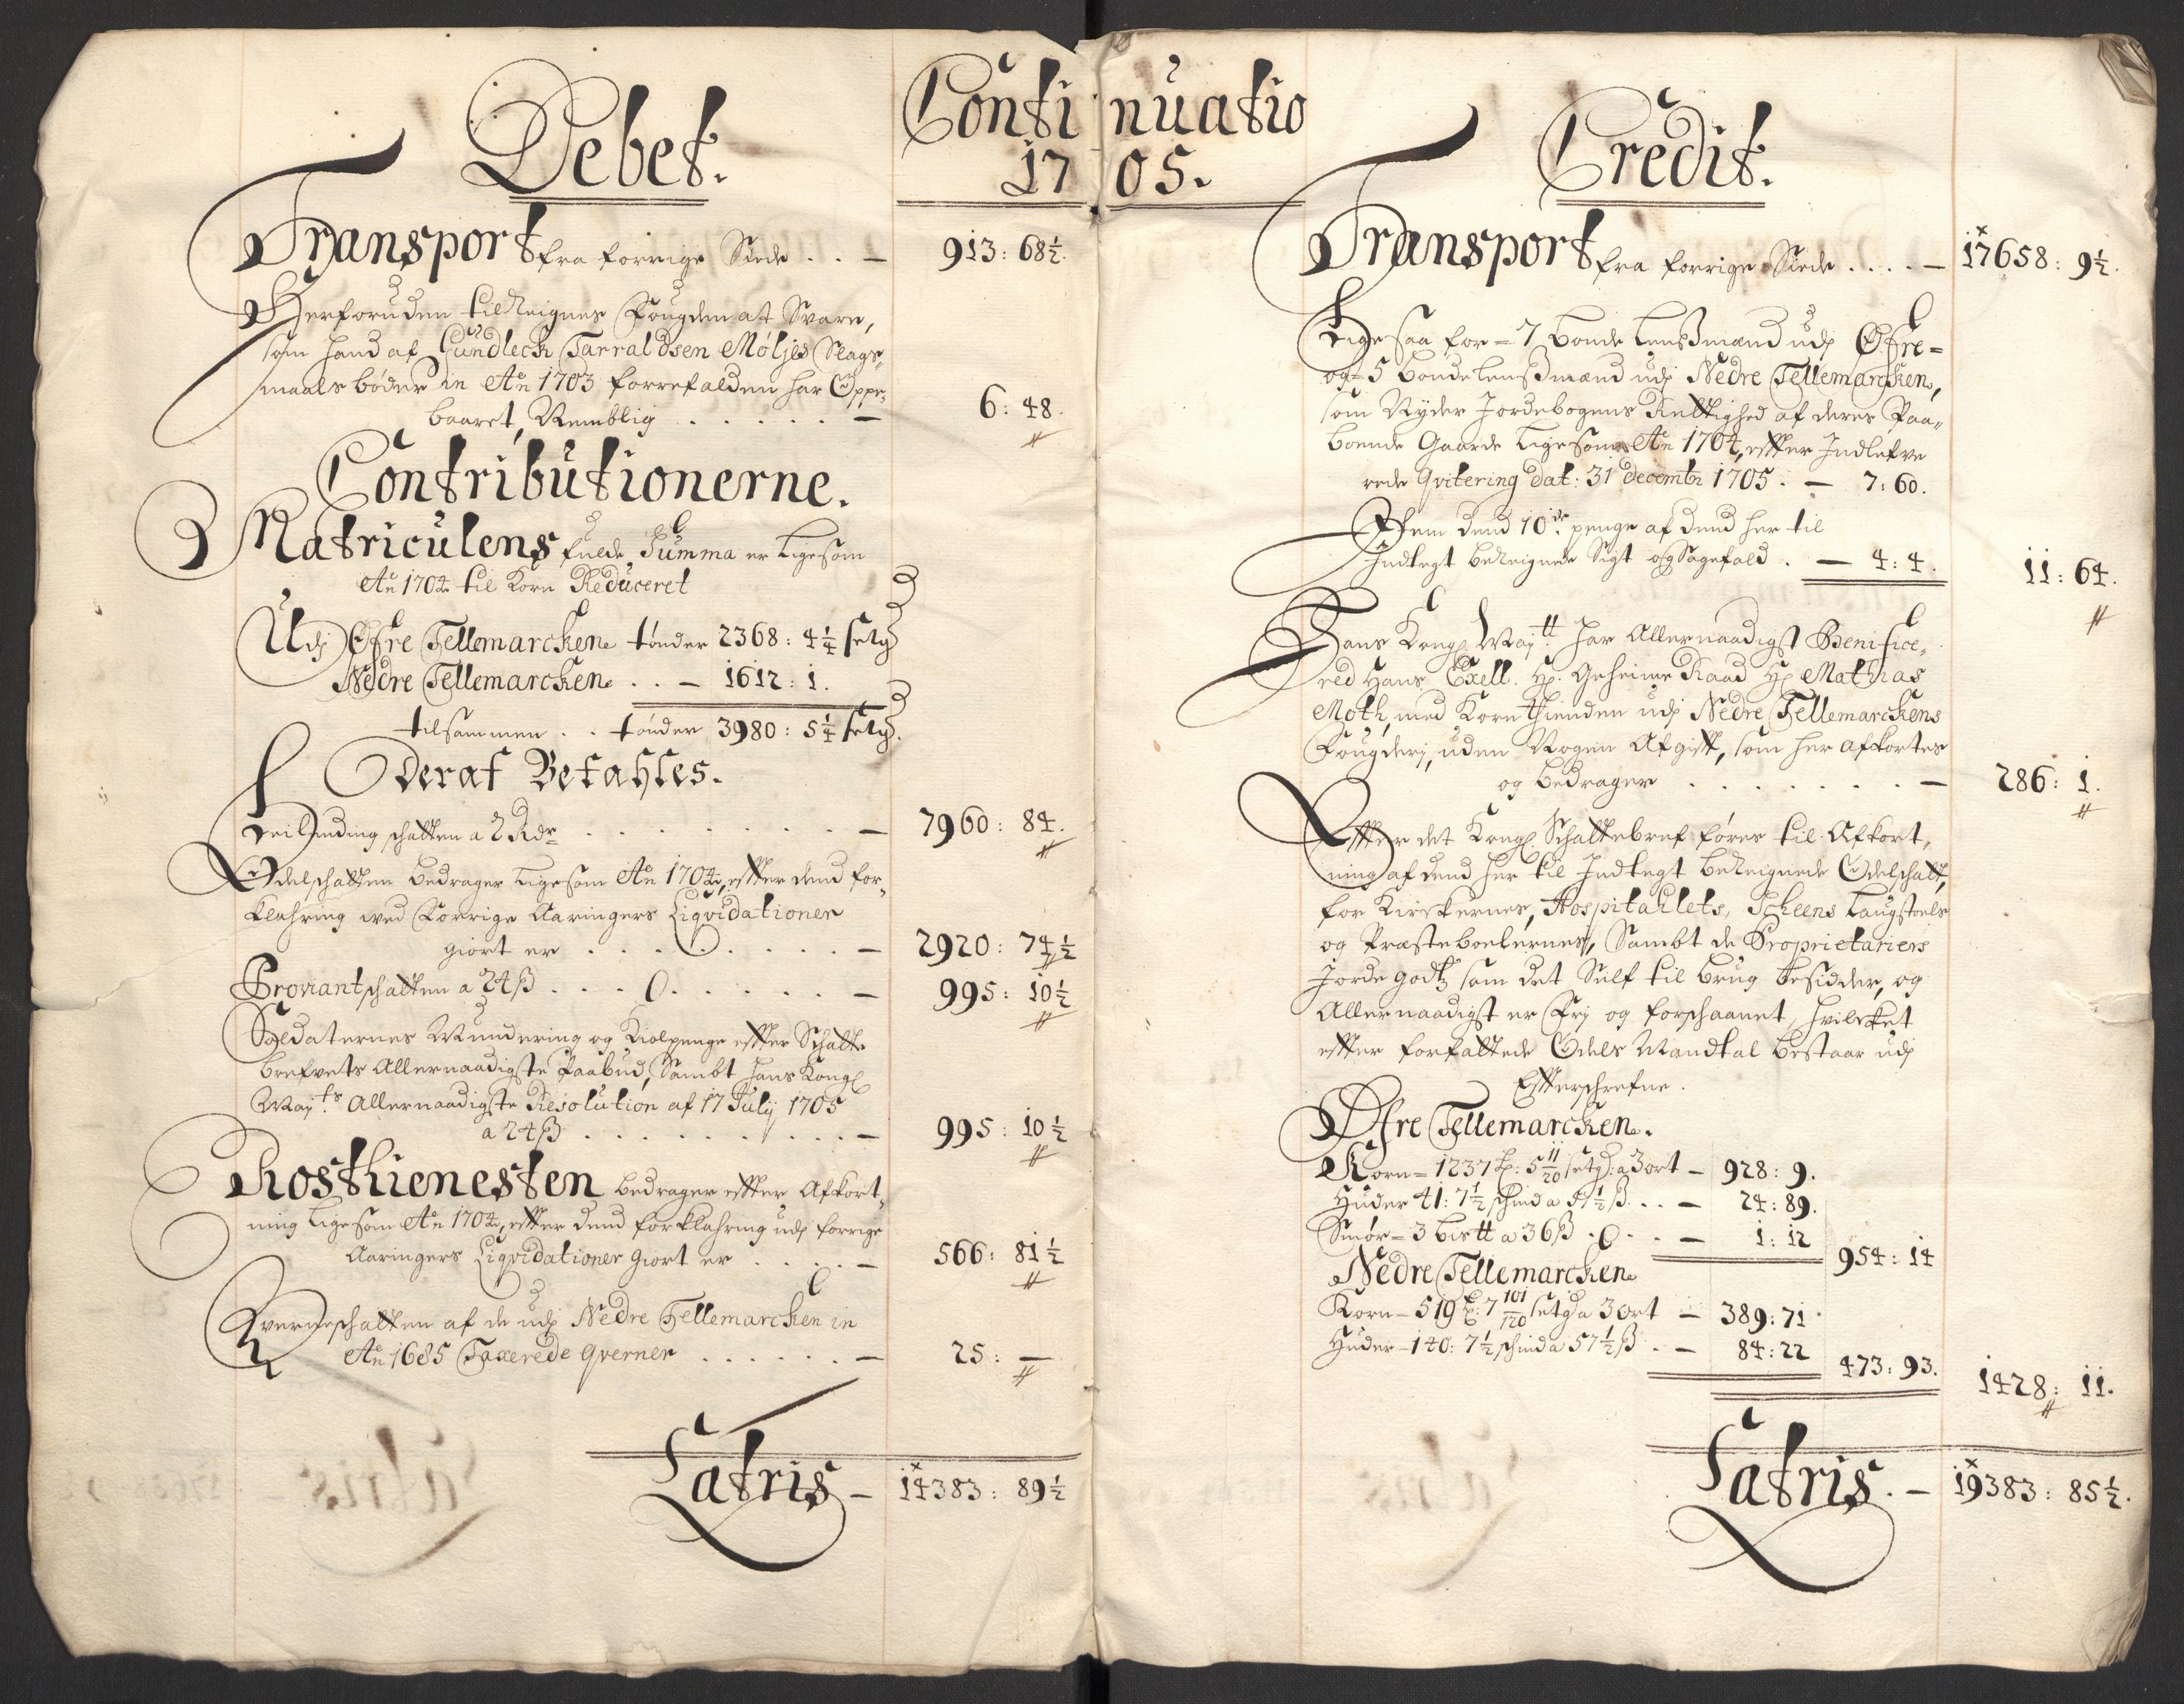 Debet.
Continuatio
1705.
Transport fra forrige Siede . . — 913: 68½.
Herforuden tilReignes Fougden at Svare,
som hand af Gundleck Tarraldsen Møljes Slags-
maals bøder in Ao 1703 forrefalden har Oppe-
baaret, Nemblig . . . . . — 6: 48.
Contributionerne.
Matriculens fulde Summa er Ligesom
Ao 1704 til Korn Reduceret
Udj Øfre Tellemarcken tønder 2368: 4¼ setg
Nedre Tellemarcken . . — 1612: 1.
tilsammen . . tønder 3980: 5¼ setg.
Deraf Betahles.
Leilendingschatten a 2 Rdr . . . . . — 7960: 84.
Odelschatten bedrager Ligesom Ao 1704, effter dend for-
klahring ved Forrige Aaringers Liqvidationer
giort er . . . . . . — 2920: 74½
Proviantschatten a 24ß . . . . . . — 995: 10½
Soldaternes Mundering og Kiolpenge effter Schatte
brefvets Allernaadigste Paabud, Sambt hans Kongl
Mayts Allernaadigste Resolution af 17 July 1705
a 24ß . . . . . . . — 995: 10½
Rosthienesten bedrager effter Afkort-
ning Ligesom Ao 1704, effter dend forklahring udj forrige
Aaringers Liqvidationer giort er . . . . — 566: 81½
Qverneschatten af de udj Nedre Tellemarcken in
Ao 1685 Taxerede qverner . . . . . — 25: —
Latris — 14383: 89½
Credit.
Transport fra forrige Siede . . . . — 17658: 9½.
Ligesaa for = 7 bonde Lensmænd udj Øfre =
og = 5 bondelensmænd udj Nedre Tellemarcken,
som Nyder Jordebogens Rettighed af deres Paa-
boende Gaarde Ligesom Ao 1704, effter Indlefve
rede Qvitering dat: 31 decembr 1705. — 7: 60.
Item dend 10de penge af dend her til
Indtegt beReignede Sigt og Sagefald . — 4: 4.
11: 64.
Hans Kongl Maytt har Allernaadigst Benifice-
red Hans Exell. Hr. Geheime Raad Hr Mathias
Moth, med Kornthienden udj Nedre Tellemarckens
Fougderj, uden Nogen Afgifft, som her afkortes
og bedrager . . . . . . . — 286: 1.
Effter det Kongl Schattebref føres til Afkort-
ning af dend her til Indtegt beReignede Odelschatt,
for Kirckernes, Hospitahlets, Scheens Laugstoels
og Præsteboelernes, Sambt de Proprietariers
Jordegodtz som det Self til brug besidder, og
Allernaadigst er Frj og forschaanet, hvilcket
effter forfattede Odels Mandtal bestaar udj
Effterschrefne.
Øfre Tellemarcken.
Korn = 1237 t: 5 11/20 setg: a 3 ort — 928: 9.
Huder 41: 7½ schind a 57½ß . . — 24: 89.
Smør = 3 bistt a 36ß . . . — 1: 12
954: 14
Nedre Tellemarcken
Korn — 519 t: 7 101/120 setg a 3 ort — 389: 71.
Huder — 140: 7½ schind a 57½ß . — 84: 22
473: 93.
1428: 11.
Latris. — 19383: 85½.